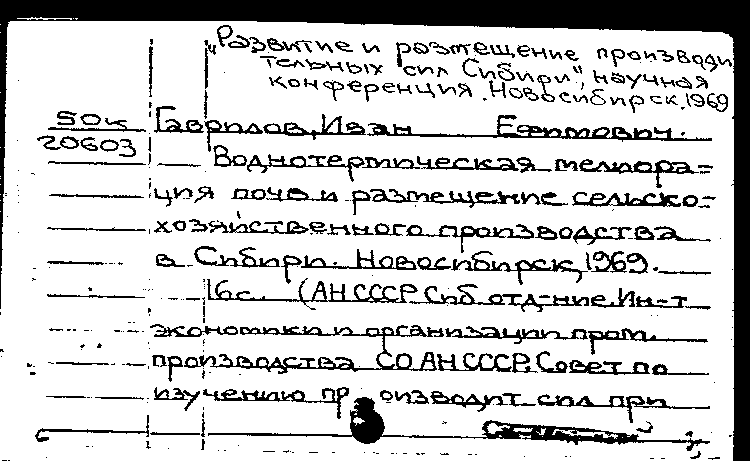 „Развитие и размещение производи
тельных сил Сибири", научная
конференция. Новосибирск, 1969
50к Гаврилов, Иван Ефимович.
20603 Воднотермическая мелиора=
ция почв и размещение сельско-
хозяйственного производства
в Сибири. Новосибирск, 1969.
16с. (АН СССР. Сиб. отд-ние. Ин-т
экономики и организации пром.
производства СО АН СССР. Совет по
изучению производит. сил при